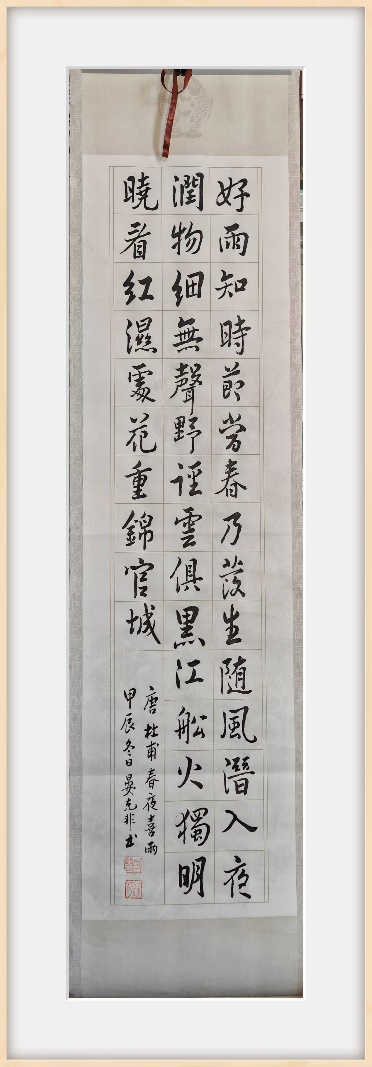 好雨知時節當春乃發生随風潛入夜
潤物細無聲野徑雲俱黑江船火獨明
曉看紅濕處花重錦官城
唐杜甫春夜喜雨
甲辰冬日晏克非書